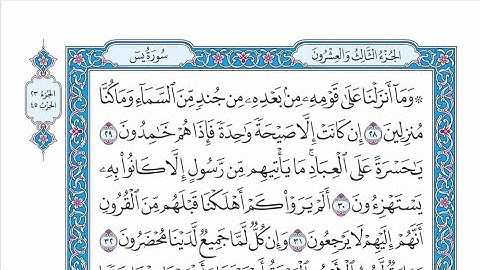 سُورَةُ يسٓ
الجُزْءُ الثَّالِثُ وَالعِشْرُونَ
الجزء ٢٣
الحزب ٤٥
۞ وَمَآ أَنزَلْنَا عَلَىٰ قَوْمِهِۦ مِنۢ بَعْدِهِۦ مِن جُندٍ مِّنَ ٱلسَّمَآءِ وَمَا كُنَّا
مُنزِلِينَ ٢٨ إِن كَانَتْ إِلَّا صَيْحَةً وَٰحِدَةً فَإِذَا هُمْ خَٰمِدُونَ ٢٩
يَٰحَسْرَةً عَلَى ٱلْعِبَادِ مَا يَأْتِيهِم مِّن رَّسُولٍ إِلَّا كَانُوا۟ بِهِۦ
يَسْتَهْزِءُونَ ٣٠ أَلَمْ يَرَوْا۟ كَمْ أَهْلَكْنَا قَبْلَهُم مِّنَ ٱلْقُرُونِ
أَنَّهُمْ إِلَيْهِمْ لَا يَرْجِعُونَ ٣١ وَإِن كُلٌّ لَّمَّا جَمِيعٌ لَّدَيْنَا مُحْضَرُونَ ٣٢